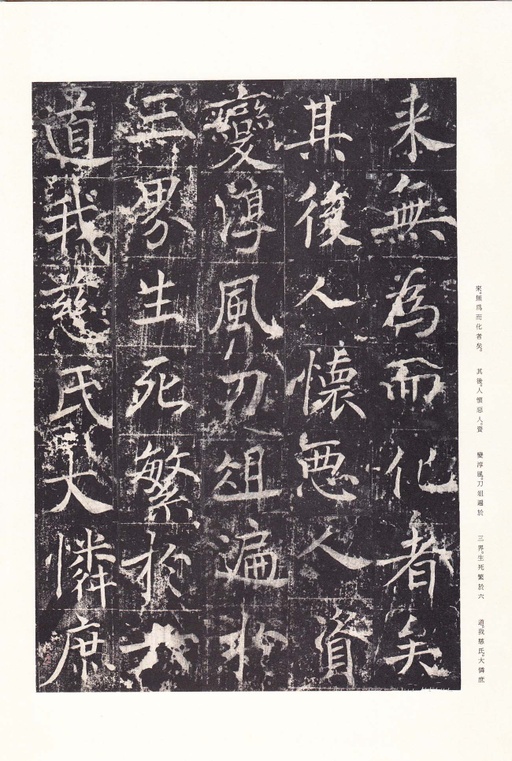 来無為而化者矣
其後人懷悪人資
變淳風刀俎遍於
三界生死繁於六
道我慈氏大憐庶
來，無為而化者矣。 其後，人懷惡人，資 變淳風，刀俎遍於 三界。生死繁於六 道。我慈氏，大憐庶